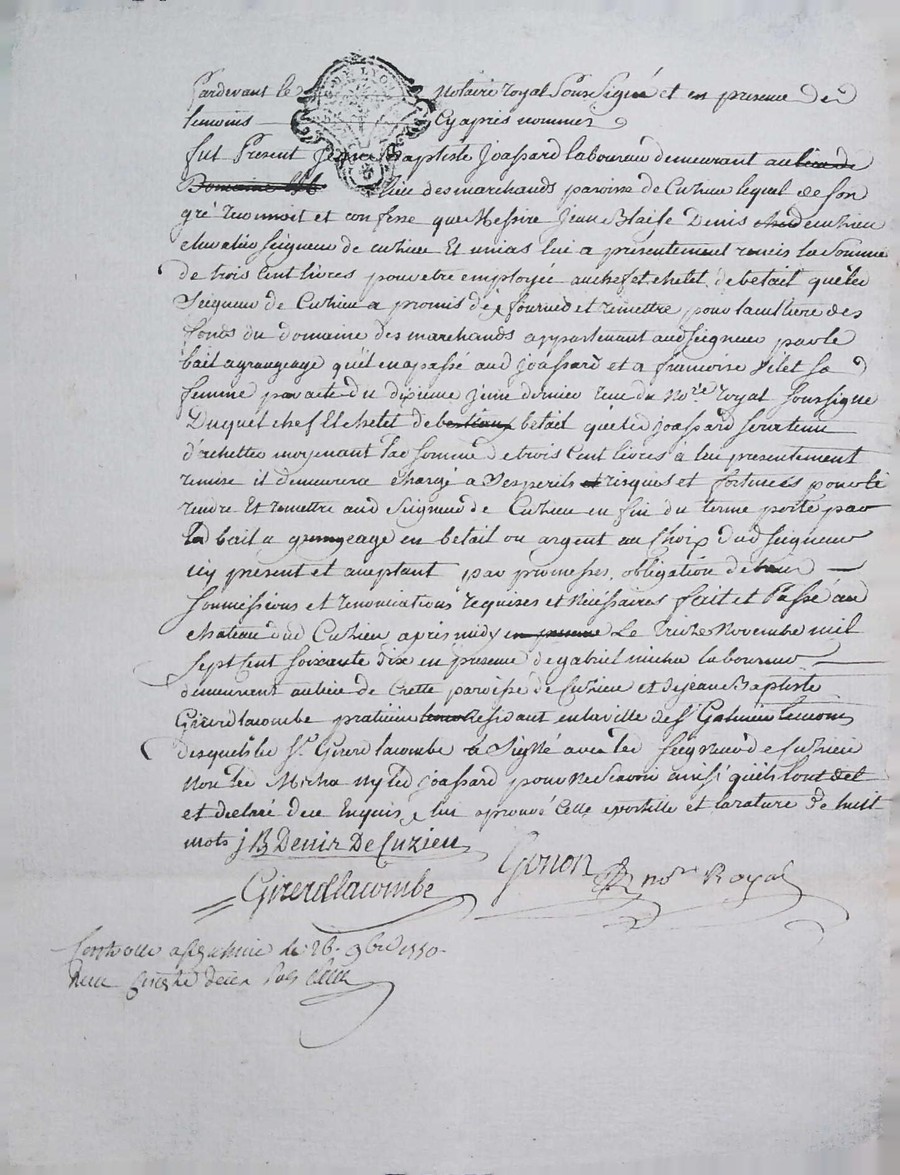 DE LYON
Pardevant le notaire royal Soussigné et en presence des
temoins cy après nommes
fut Present Jean Baptiste Joassard laboureur demeurant au lieu de
Domaine lieu des marchands paroisse de Cuzieu lequel de son
gré reconnoit et confesse que Messire Jean Blaise Denis de cuzieu
chevalier seigneur de cuzieu Et unias lui a presentement remis la somme
de trois cent livres pour etre employée au chef et chetel de betail que led
Seigneur de Cuzieu a promis de fournir et remettre pour la culture des
fonds du domaine des marchands appartenant aud seigneur par le
bail a grangeage qu'il en a passé aud Joassard et a francoise filet sa
femme par acte du dixieme Juin dernier recu du No.re royal soussigné
Duquel chef Et chetel de bestiaux betail que led Joassard sera tenu
d'achetter moyenant lad somme de trois cent livres a lui presentement
remise il demeurera chargé a ses perils et risques et fortunes pour le
rendre Et remettre aud Seigneur de Cuzieu en fin du terme porté par
led bail a grangeage en betail ou argent au choix dud seigneur
icy present et acceptant par promesses, obligation de biens
soumissions et renonciations requises et Nécéssaires fait et Passé au
chateau dud Cuzieu apres midy en presence Le treize Novembre mil
sept cent soixante dix en presence de gabriel micha laboureur
demeurant au lieu de Crette paroisse de Cuzieu et de jean Baptiste
Girerd lacombe praticien residant en la ville de St Galmier temoins
desquels le Sr. Girerd lacombe a Signé avec led Seigneur de Cuzieu
Non led Micha ny led Joassard pour ne scavoir ainsi qu'ils l'ont dit
et declaré de ce Enquis, lui aprouvé cette apostille et la rature de huit
mots J B Denis De Cuzieu
Girerdlacombe Gonon nore Royal
Controlle a St galmier le 26. 9bre 1770.
Recu